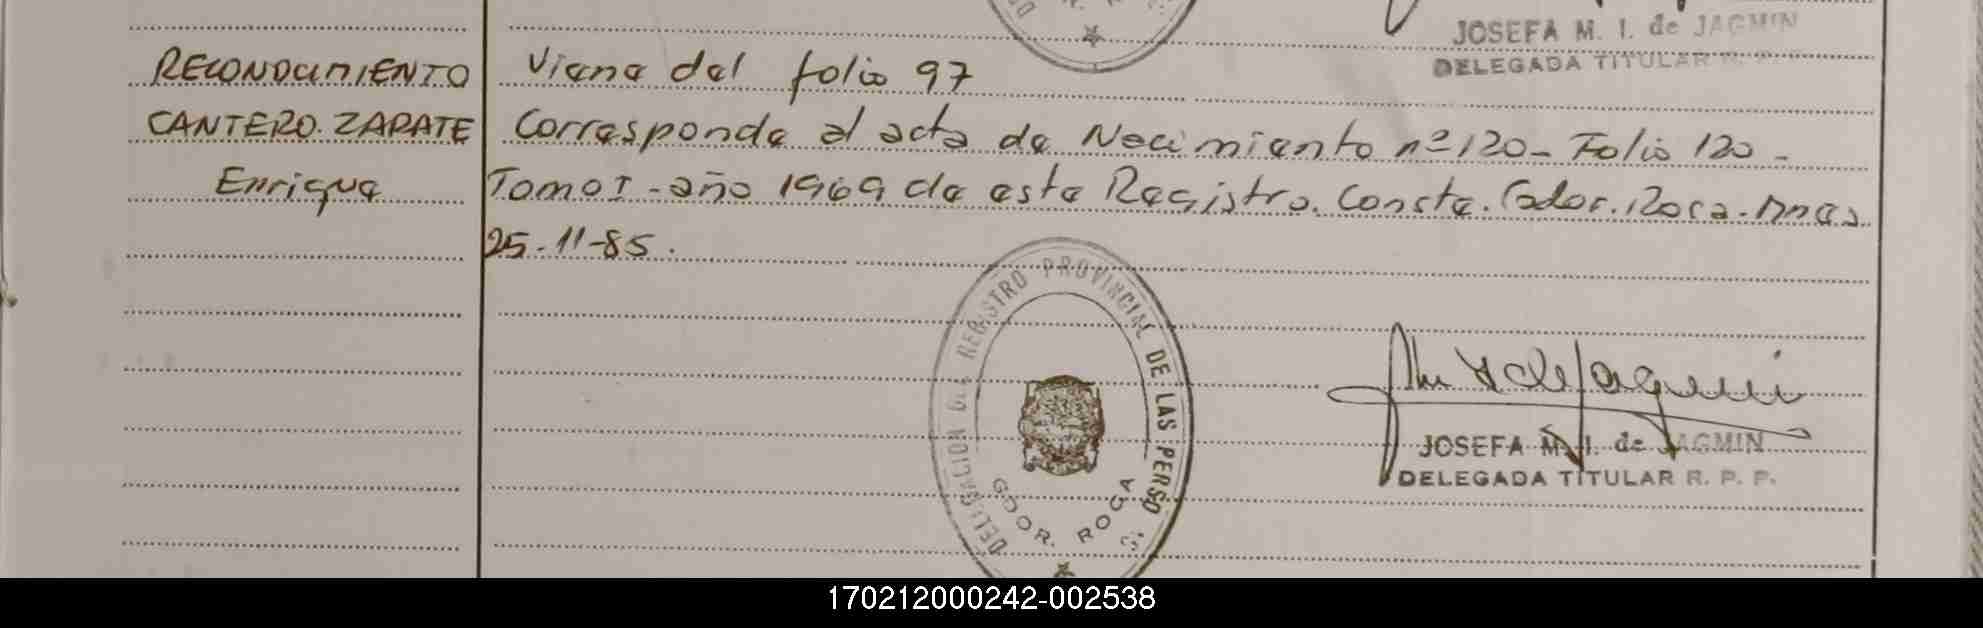 JOSEFA M. I. de JAGMIN
DELEGADA TITULAR R. P. P.
RECONOCIMIENTO
CANTERO. ZAPATE
Enrique
Viene del folio 97
Corresponde al acta de Nacimiento nº 120 - Folio 120 -
Tomo I - año 1969 de este Registro. Conste. Gdor. Roca. Mnes.
25-11-85.
DELEGACION DEL REGISTRO PROVINCIAL DE LAS PERSO
GDOR. ROCA
JOSEFA M. I. de JAGMIN
DELEGADA TITULAR R. P. P.
170212000242-002538